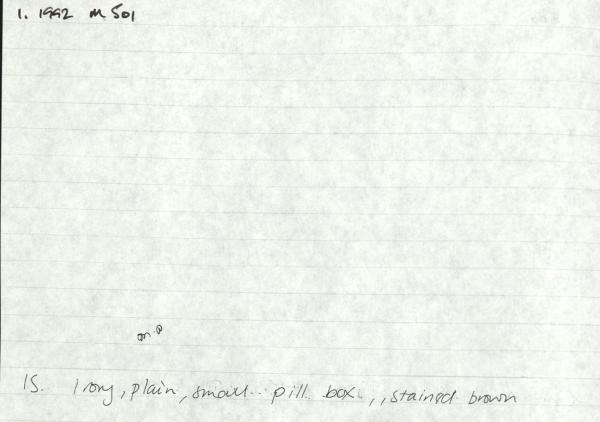 1. 1992 M 501
15. Ivory, plain, small pill box,, stained brown